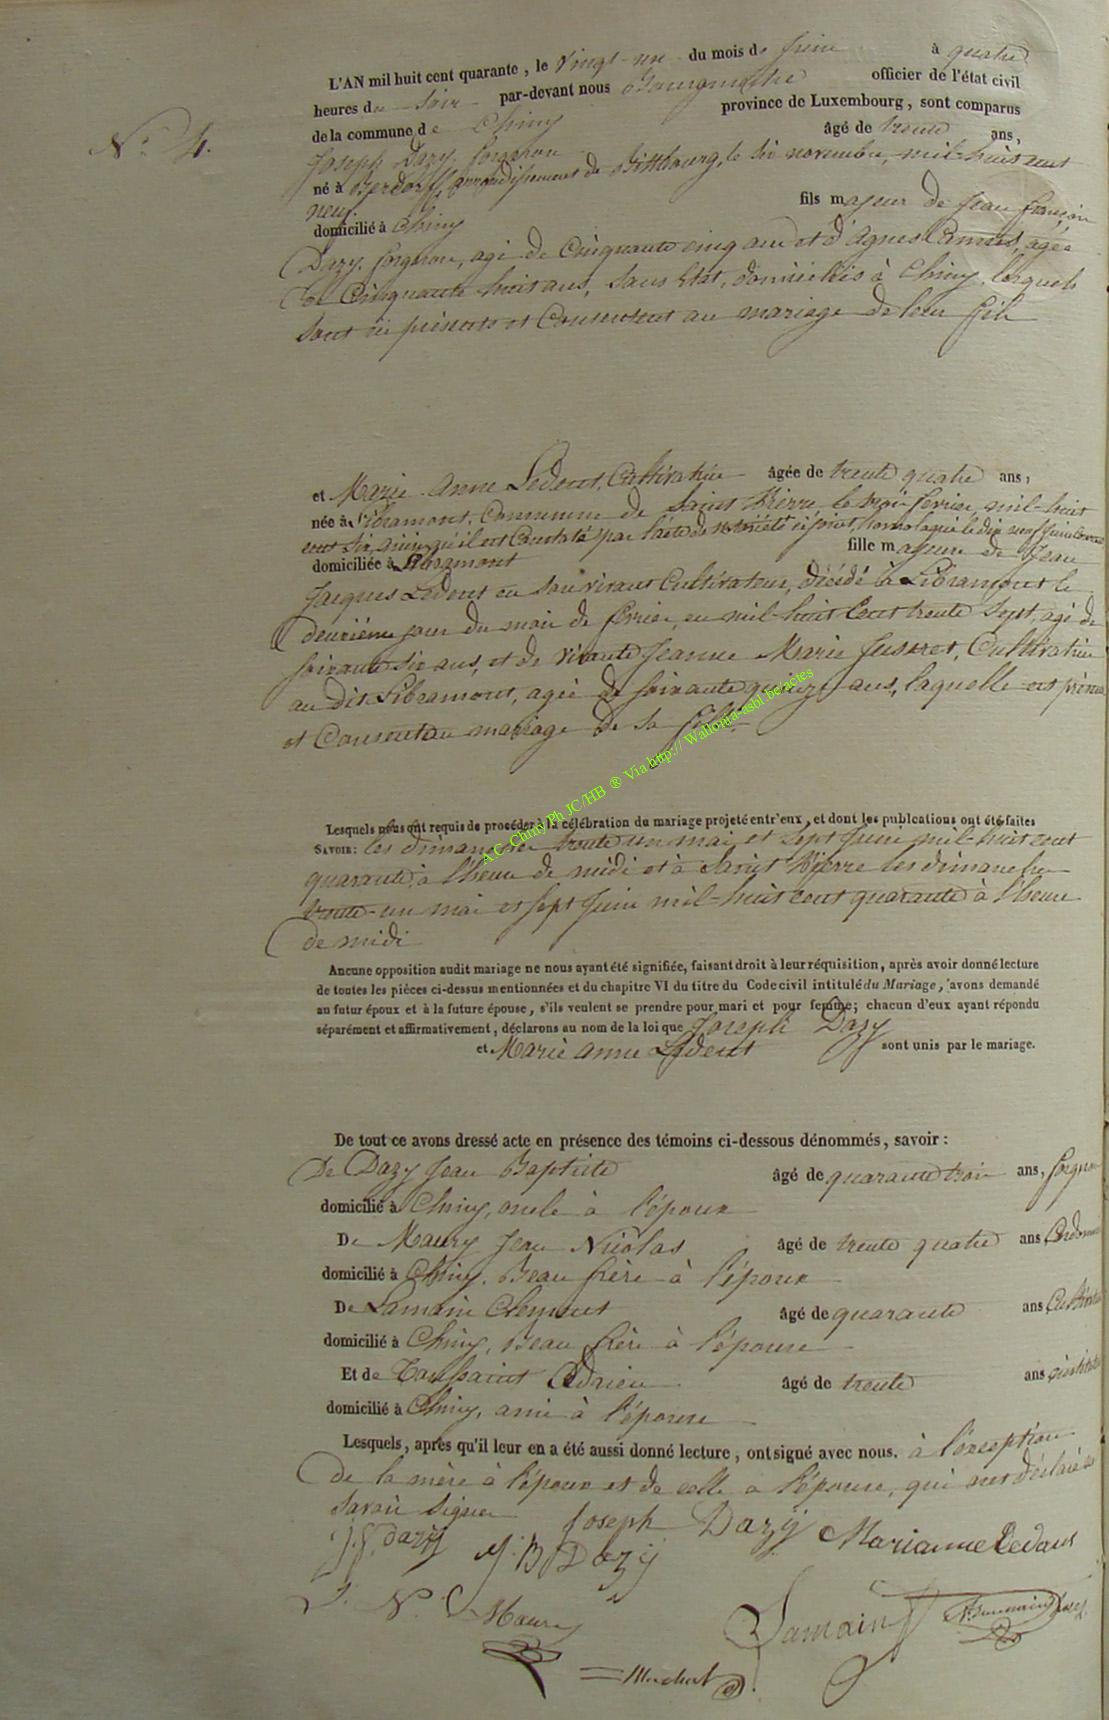 L'AN mil huit cent quarante, le vingt-un du mois de juin à quatre
heures du soir par-devant nous Bourgmestre officier de l'état civil
de la commune de Chiny province de Luxembourg, sont comparus
N° 4.
Joseph Dazy, forgeron âgé de trente ans,
né à Berdorff, arrondissement de Bittbourg, le six novembre mil-huit cent
neuf.
domicilié à Chiny fils majeur de Jean François
Dazy, forgeron, agé de Cinquante cinq ans et d'Agnes agée
de Cinquante huit ans, sans état, domiciliés à Chiny, lesquels
sont ici présents et Consentent au mariage de leur fils
et Marie Anne Ledent, Cultivatrice âgée de trente quatre ans,
née à Libramont, Commune de Saint Pierre, le trois fevrier mil-huit
cent six, ainsi qu'il est Constaté par l'acte de notoriété ci-joint, homologué le dix neuf juin
domiciliée à Libramont fille majeure de Jean
Jacques Ledent en son vivant Cultivateur, décédé à Libramont le
deuxième jour du mois de fevrier, en mil-huit Cent trente sept, agé de
soixante six ans, et de vivante Jeanne Marie Cultivatrice
au dit Libramont, agée de soixante quinze ans, laquelle est présente
et Consent au mariage de sa fille.
A.C. Chiny Ph JC/HB ® Via http:// Wallonia-asbl.be/actes
Lesquels nous ont requis de procéder à la célébration du mariage projeté entr'eux, et dont les publications ont été faites
SAVOIR: les dimanches trente un mai et sept juin mil-huit cent
quarante, à l'heure de midi et à Saint Pierre les dimanches
trente-un mai et sept juin mil-huit cent quarante à l'heure
de midi
Ancune opposition audit mariage ne nous ayant été signifiée, faisant droit à leur réquisition, après avoir donné lecture
de toutes les pièces ci-dessus mentionnées et du chapitre VI du titre du Code civil intitulé du Mariage, avons demandé
au futur époux et à la future épouse, s'ils veulent se prendre pour mari et pour femme; chacun d'eux ayant répondu
séparément et affirmativement, déclarons au nom de la loi que Joseph Dazy
et Marie Anne Ledent sont unis par le mariage.
De tout ce avons dressé acte en présence des témoins ci-dessous dénommés, savoir:
De Dazy Jean Baptiste âgé de quarante trois ans, forgeron
domicilié à Chiny, oncle à l'époux
De Maury Jean Nicolas âgé de trente quatre ans
domicilié à Chiny, Beau frère à l'époux
De Lamain Clement âgé de quarante ans
domicilié à Chiny, Beau frère à l'épouse
Et de Toussaint Adrien âgé de trente ans
domicilié à Chiny, ami à l'épouse
Lesquels, après qu'il leur en a été aussi donné lecture, ont signé avec nous. à l'exception
de la mère à l'époux et de celle à l'épouse, qui ont déclaré ne
savoir signer
Joseph Dazy Marianne Ledant
J.f. dazy J. B Dazy
J. N. Maury Lamain